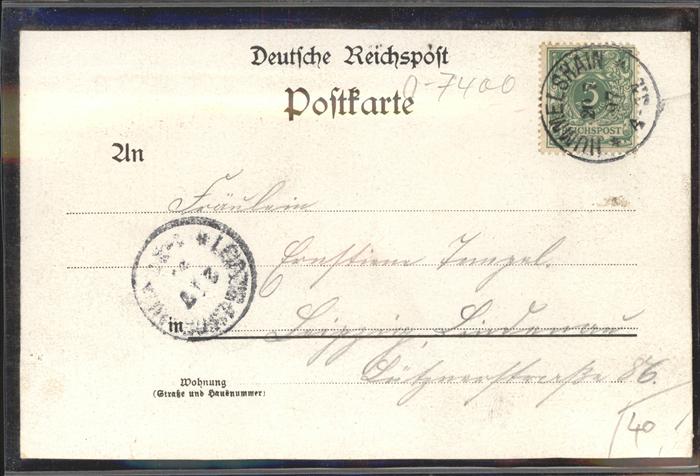 Deutsche Reichspost
O-7400
Postkarte
HUMMELSHAIN
5
REICHSPOST
An
Fräulein
Ernstiene Tempel.
LEIPZIG
in Leipzig, Lindenau
Wohnung
(Straße und Hausnummer)
Lütznerstraße 86.
140